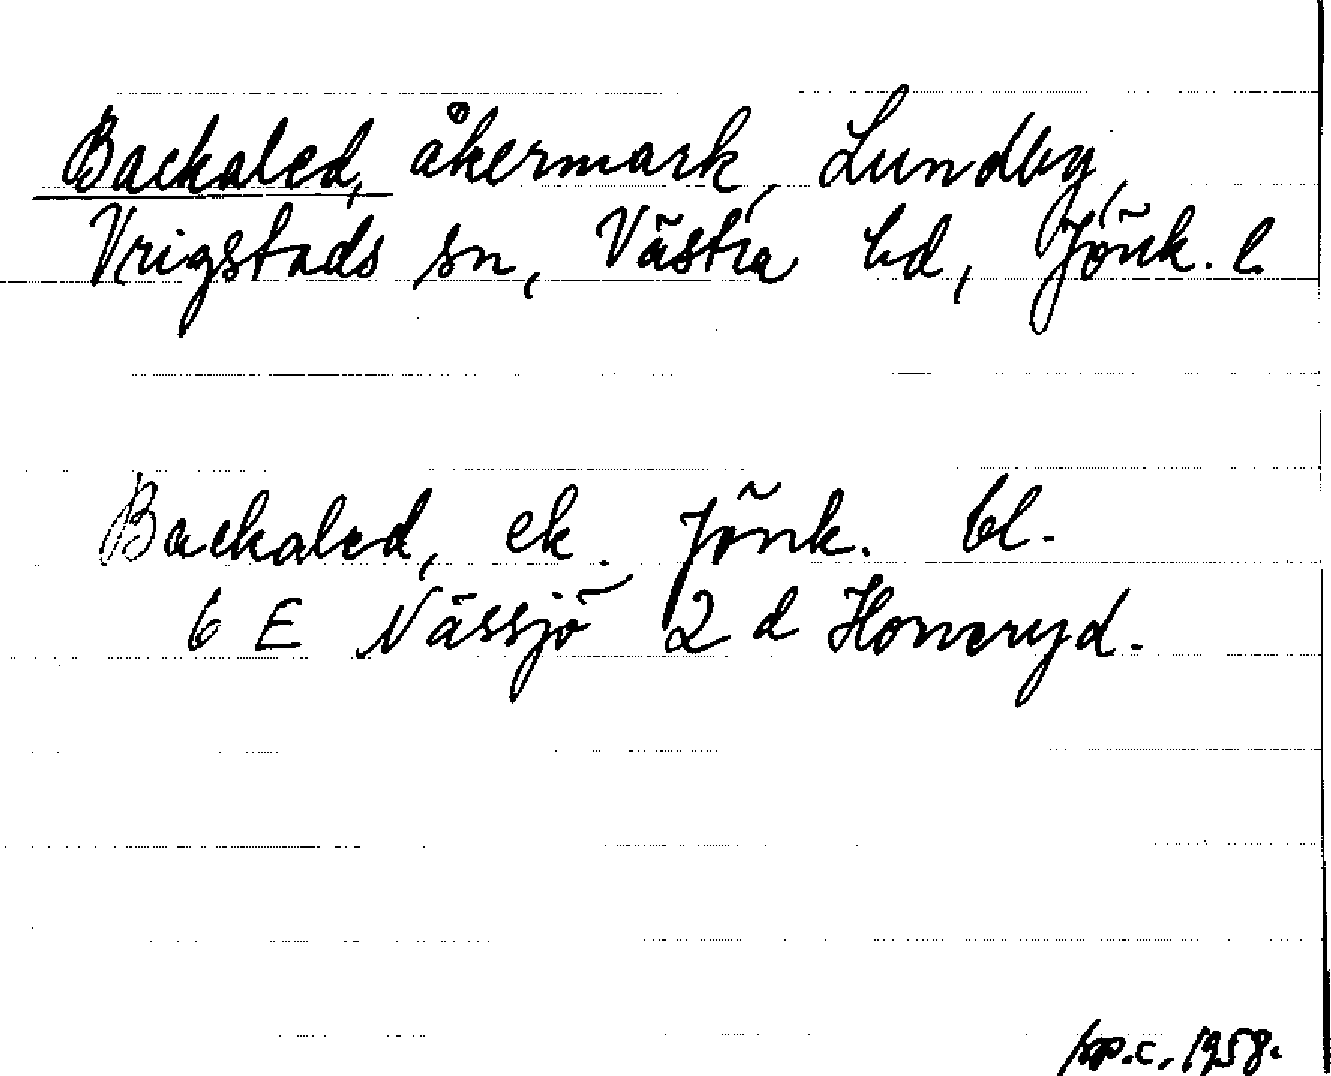 Backaled, åkermark, Lundby,
Vrigstads sn, Västra hd, Jönk. l.
Backaled, ek. Jönk. bl.
6 E Nässjö 2 d Honeryd.
1958.